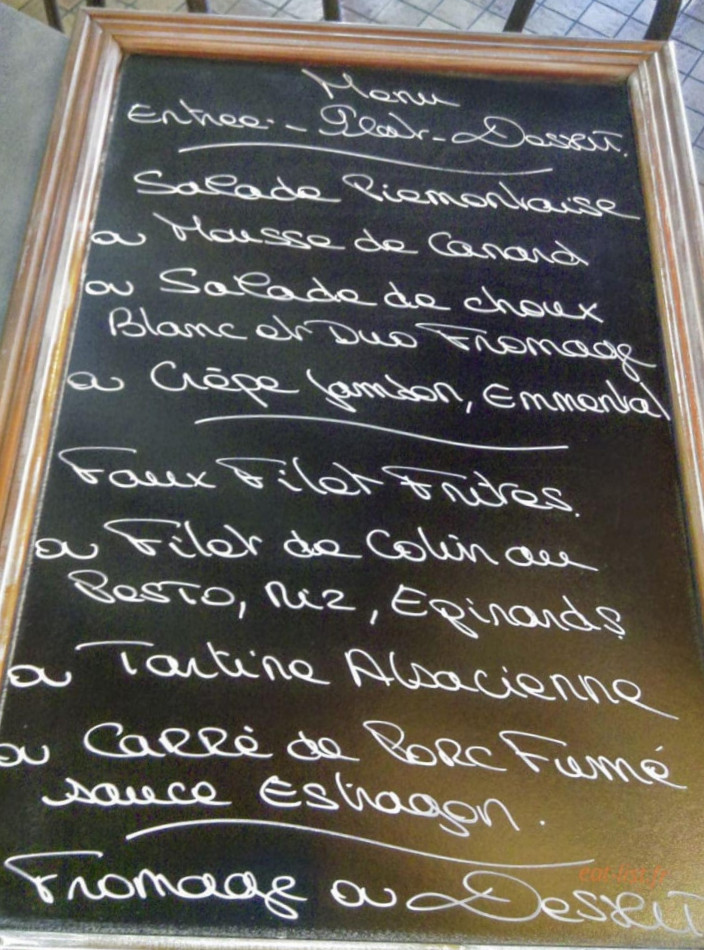 Menu
Entree - Plat - Dessert.
Salade Piemontaise
ou Mousse de Canard
ou Salade de choux
Blanc et Duo Fromage
ou Crêpe Jambon, Emmental
Faux Filet Frites.
ou Filet de Colin au
Pesto, Riz, Epinards
ou Tartine Alsacienne
ou Carré de Porc Fumé
sauce Estragon.
Fromage ou Dessert